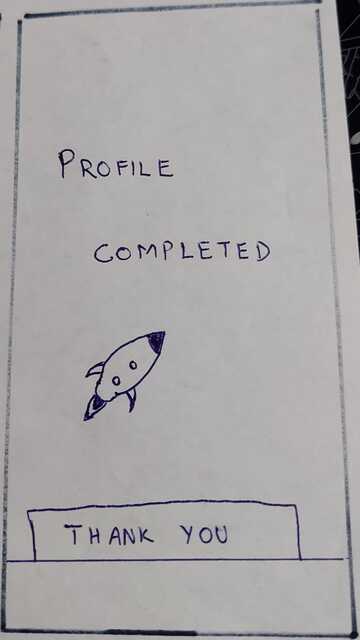 PROFILE
COMPLETED
THANK YOU